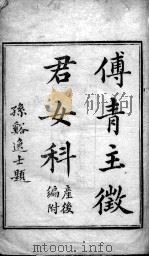 傅青主徵
君女科
產後
編附
孫谿逸士題
www.toutiao.com